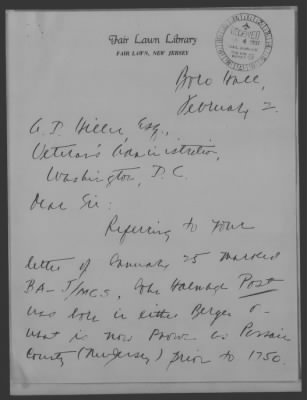 Fair Lawn Library
FAIR LAWN, NEW JERSEY
RECEIVED
Boro Hall,
February 2.
A. D. Hiller, Esq.,
Veteran's Administration,
Washington, D.C.
Dear Sir:
Referring to your
letter of January 25 marked
BA-J/MCS, John Post
was born in either Bergen or
what is now known as Passaic
County (New Jersey) prior to 1750.